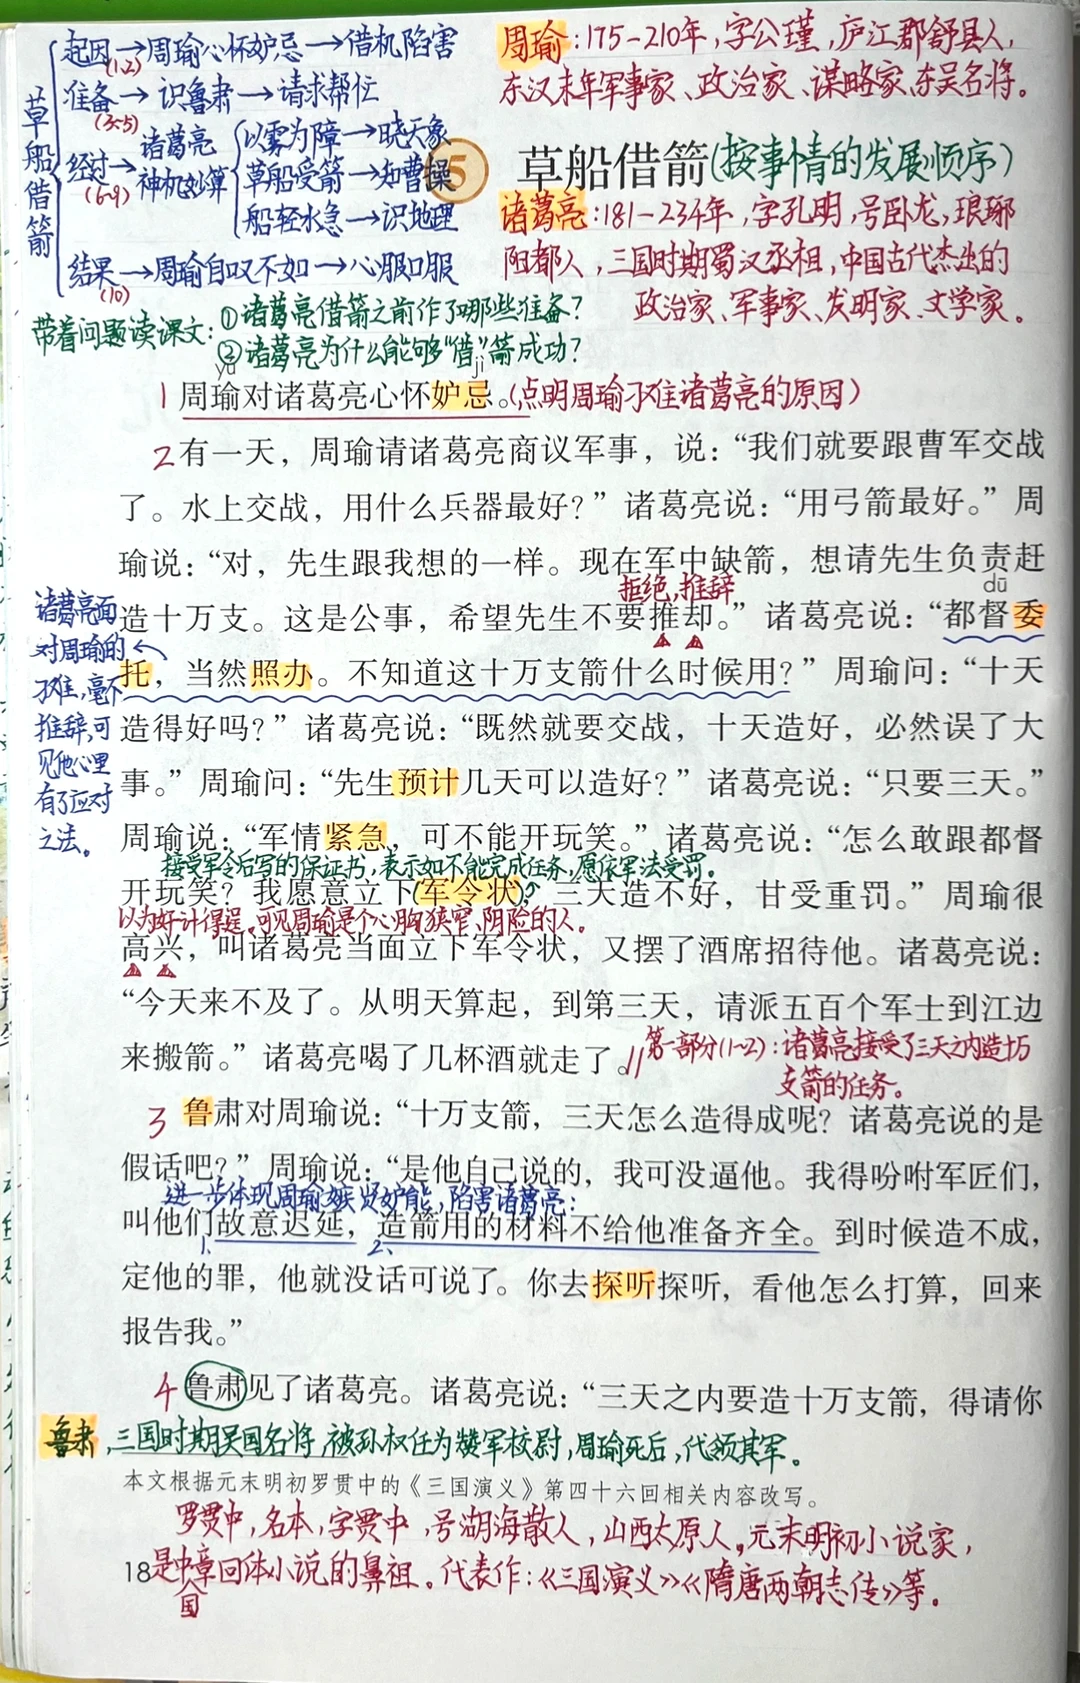 草船借箭
起因→周瑜心怀妒忌→借机陷害
(1-2)
准备→识鲁肃→请求帮忙
(3-5)
经过→诸葛亮神机妙算
(6-9)
以雾为障→晓天象
草船受箭→知曹操
船轻水急→识地理
结果→周瑜自叹不如→心服口服
(10)
周瑜:175-210年,字公瑾,庐江郡舒县人,
东汉末年军事家、政治家、谋略家,东吴名将。
5 草船借箭(按事情的发展顺序)
诸葛亮:181-234年,字孔明,号卧龙,琅琊
阳都人,三国时期蜀汉丞相,中国古代杰出的
政治家、军事家、发明家、文学家。
带着问题读课文:①诸葛亮借箭之前作了哪些准备?
②诸葛亮为什么能够"借"箭成功?
yú jì
1 周瑜对诸葛亮心怀妒忌。(点明周瑜刁难诸葛亮的原因)
2 有一天，周瑜请诸葛亮商议军事，说：“我们就要跟曹军交战
了。水上交战，用什么兵器最好？”诸葛亮说：“用弓箭最好。”周
瑜说：“对，先生跟我想的一样。现在军中缺箭，想请先生负责赶
拒绝,推辞
dū
造十万支。这是公事，希望先生不要推却。”诸葛亮说：“都督委
托，当然照办。不知道这十万支箭什么时候用？”周瑜问：“十天
造得好吗？”诸葛亮说：“既然就要交战，十天造好，必然误了大
事。”周瑜问：“先生预计几天可以造好？”诸葛亮说：“只要三天。”
诸葛亮面
对周瑜的
刁难,毫不
推辞,可
见他心里
有了应对
之法。
周瑜说：“军情紧急，可不能开玩笑。”诸葛亮说：“怎么敢跟都督
接受军令后写的保证书,表示如不能完成任务,愿依军法受罚。
开玩笑？我愿意立下(军令状)，三天造不好，甘受重罚。”周瑜很
以为奸计得逞。可见周瑜是个心胸狭窄,阴险的人。
高兴，叫诸葛亮当面立下军令状，又摆了酒席招待他。诸葛亮说：
“今天来不及了。从明天算起，到第三天，请派五百个军士到江边
来搬箭。”诸葛亮喝了几杯酒就走了。
第一部分(1-2):诸葛亮接受了三天之内造十万
支箭的任务。
3 鲁肃对周瑜说：“十万支箭，三天怎么造得成呢？诸葛亮说的是
假话吧？”周瑜说：“是他自己说的，我可没逼他。我得吩咐军匠们，
进一步体现周瑜嫉贤妒能,陷害诸葛亮:
叫他们故意迟延，造箭用的材料不给他准备齐全。到时候造不成，
1、 2、
定他的罪，他就没话可说了。你去探听探听，看他怎么打算，回来
报告我。”
4 鲁肃见了诸葛亮。诸葛亮说：“三天之内要造十万支箭，得请你
鲁肃,三国时期吴国名将,被孙权任为赞军校尉,周瑜死后,代领其军。
本文根据元末明初罗贯中的《三国演义》第四十六回相关内容改写。
罗贯中,名本,字贯中,号湖海散人,山西太原人,元末明初小说家,
18
是中国章回体小说的鼻祖。代表作:《三国演义》《隋唐两朝志传》等。